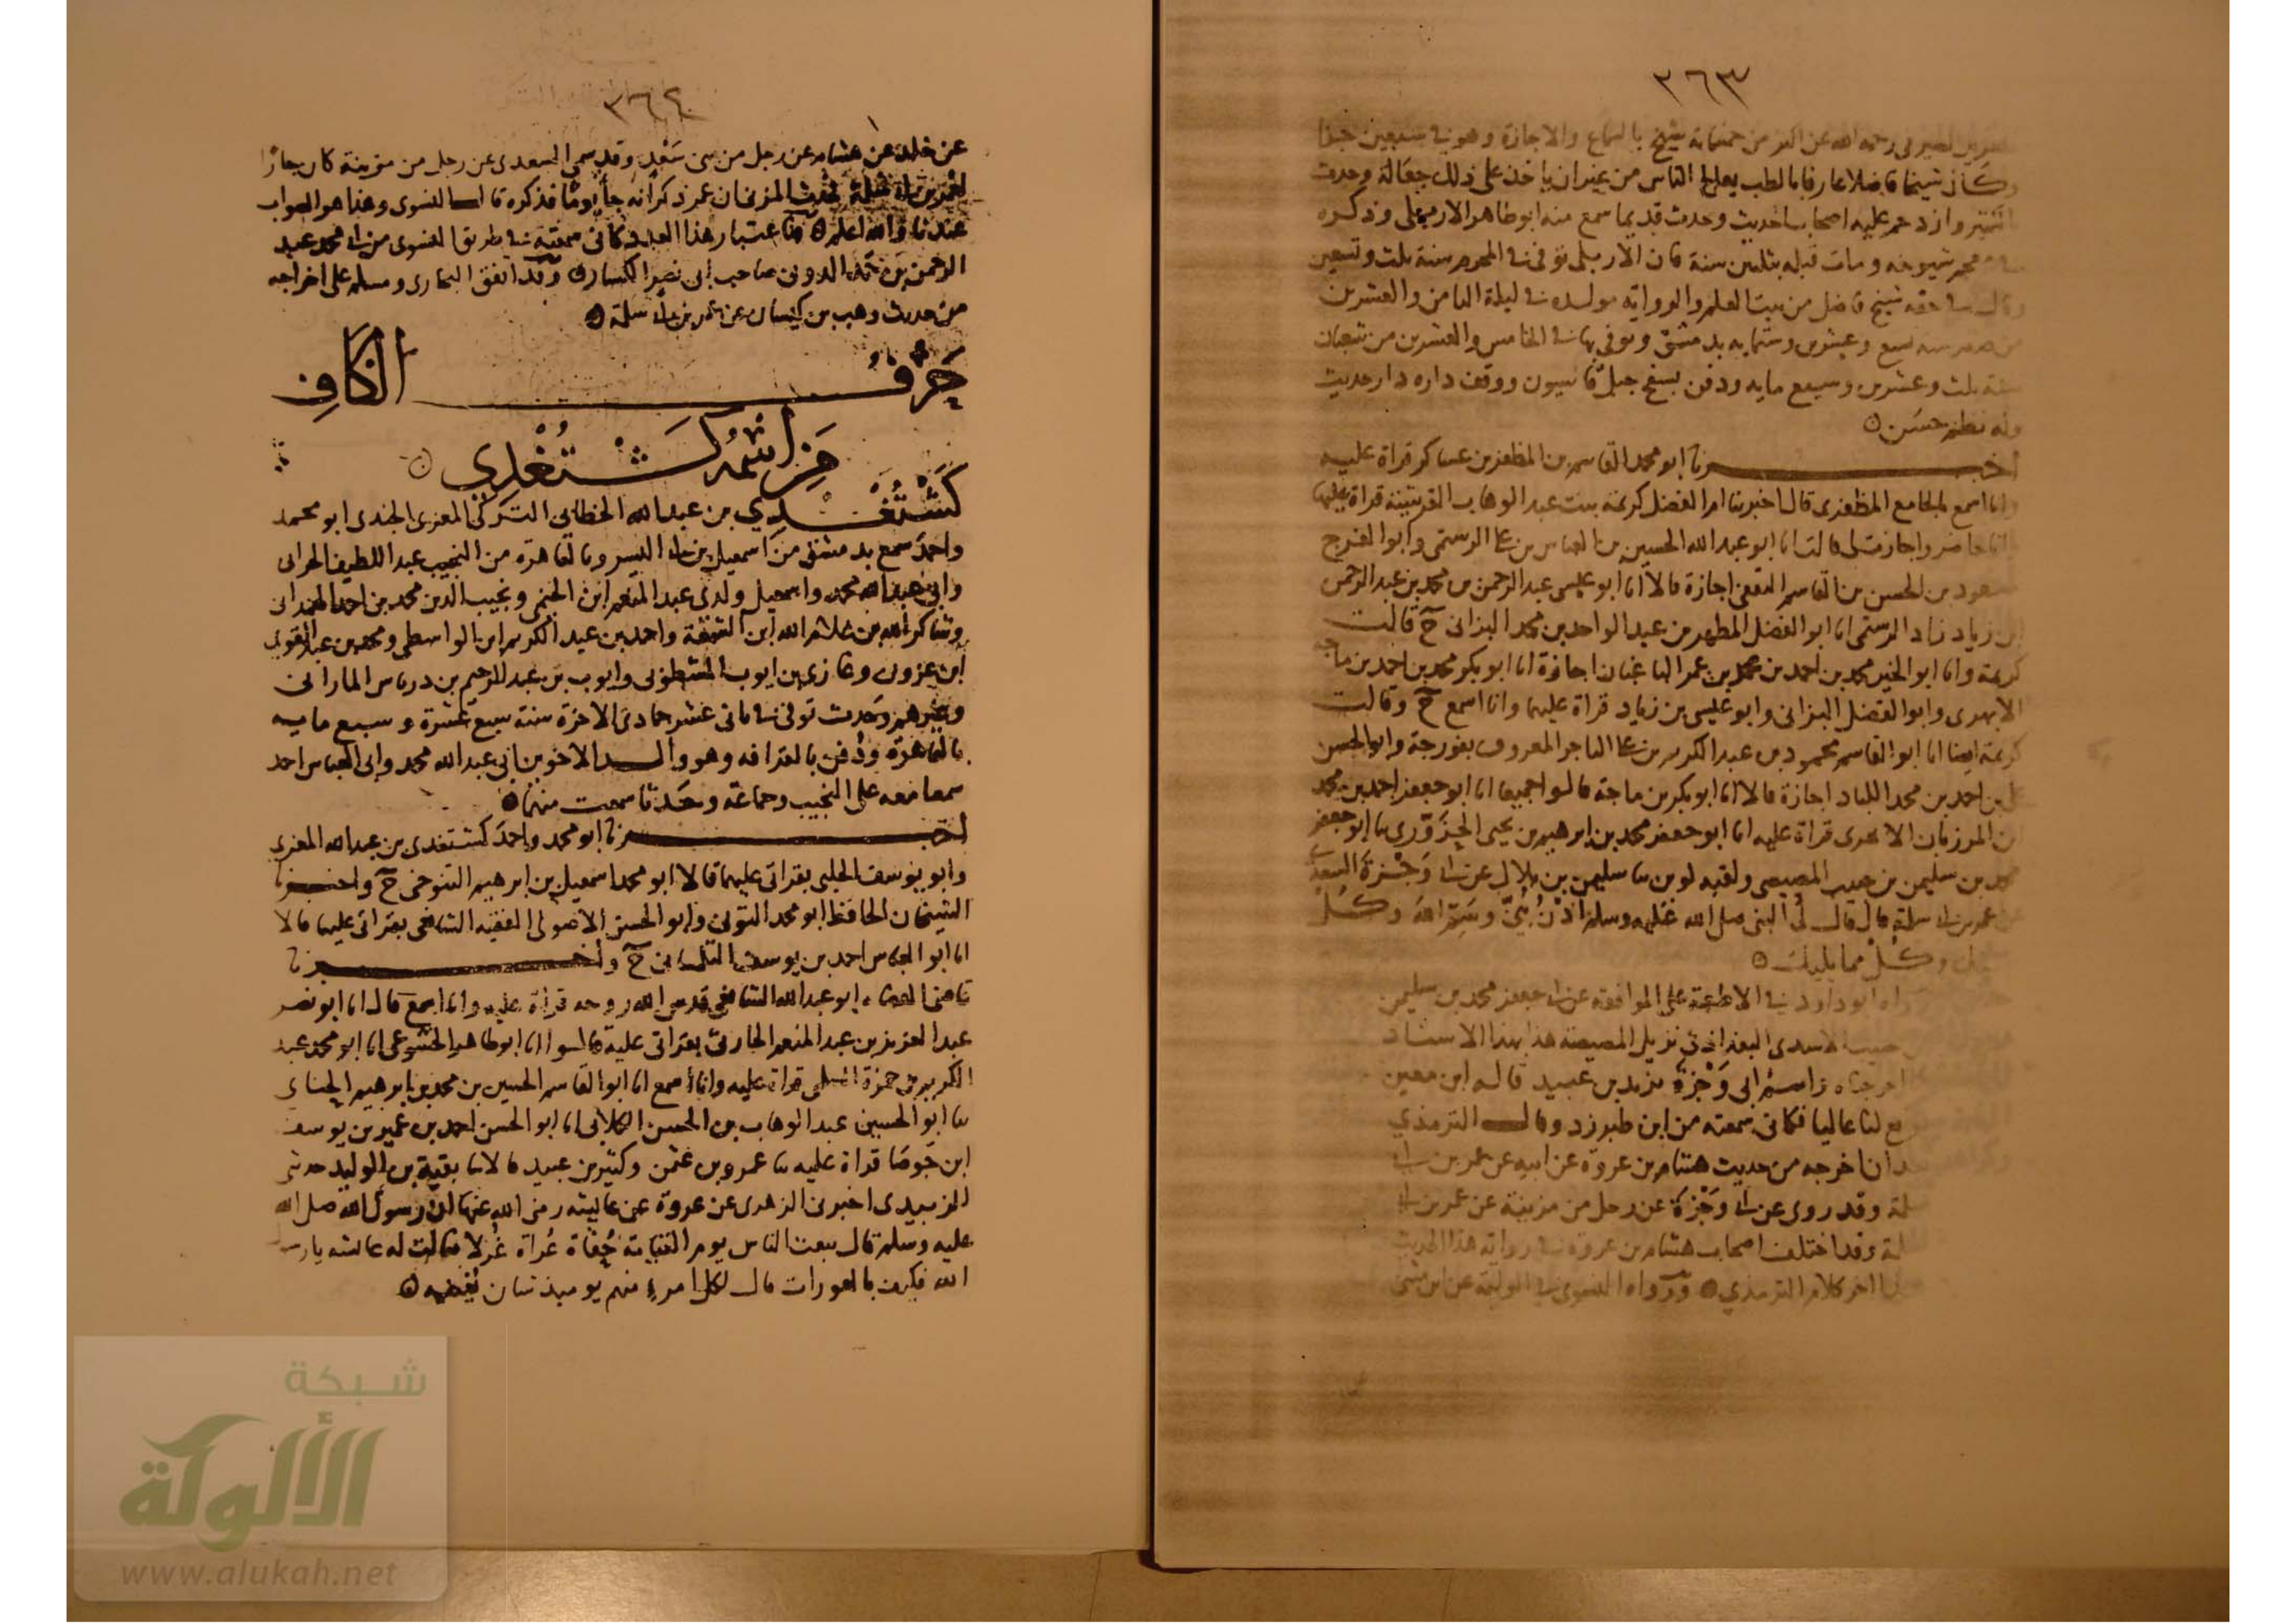 ٣٦٣
رحمه الله عن اكثر من خمسماية شيخ بالسماع والاجازة وهو في سبعين جزا
وكان شيخا فاضلا عارفا بالطب يعالج الناس من غير ان ياخذ على ذلك جعالة وحدث
بالكثير وازدحم عليه اصحاب الحديث وحدث قديما سمع منه ابو طاهر الاربلي وذكره
في معجم شيوخه ومات قبله بثلثين سنة فان الاربلي توفي في المحرم سنة ثلث وتسعين
وقال في حقه شيخ فاضل من بيت العلم والرواية مولده في ليلة الثامن والعشرين
من صفر سنة تسع وعشرين وستماية بدمشق وتوفي بها في الخامس والعشرين من شعبان
سنة ثلث وعشرين وسبع ماية ودفن بسفح جبل قاسيون ووقف داره دار حديث
وله نظم حسن
اخبرنا ابو محمد القاسم بن المظفر بن عساكر قراة عليه
وانا اسمع بالجامع المظفري قال اخبرتنا ام الفضل كريمة بنت عبد الوهاب القرشية قراة عليها
وانا حاضر واجازت لي قالت انا ابو عبد الله الحسين بن العباس بن علي الرستمي وابو الفرج
مسعود بن الحسن بن القاسم الثقفي اجازة قالا انا ابو عيسى عبد الرحمن بن محمد بن عبد الرحمن
ابن زياد زاد الرستمي انا ابو الفضل المطهر بن عبد الواحد بن محمد البزاني ح قالت
كريمة وانا ابو الخير محمد بن احمد بن محمد بن عمر الباغبان اجازة انا ابو بكر محمد بن احمد بن ماجه
الابهري وابو الفضل البزاني وابو عيسى بن زياد قراة عليهم وانا اسمع ح وقالت
كريمة ايضا انا ابو القاسم محمود بن عبد الكريم بن علي التاجر المعروف بفورجة وابو الحسن
علي بن احمد بن محمد اللباد اجازة قالا انا ابو بكر بن ماجة قالوا جميعا انا ابو جعفر احمد بن محمد
ابن المرزبان الابهري قراة عليه انا ابو جعفر محمد بن ابرهيم بن يحيى الحزوري ثنا ابو جعفر
محمد بن سليمن بن حبيب المصيصي ولقبه لوين ثنا سليمن بن بلال عن ابي وجزة السعدي
عن عمر بن ابي سلمة قال قال لي النبي صلى الله عليه وسلم ادن بني وسم الله وكل
بيمينك وكل مما يليك
رواه ابو داود في الاطعمة على الموافقة عن ابي جعفر محمد بن سليمن
حبيب الاسدي البغدادي نزيل المصيصة هذا بهذا الاسناد
اخرجناه واسم ابي وجزة يزيد بن عبيد قاله ابن معين
وقع لنا عاليا فكاني سمعته من ابن طبرزد وقال الترمذي
بعد ان اخرجه من حديث هشام بن عروة عن ابيه عن عمر بن ابي
سلمة وقد روى عن ابي وجزة عن رجل من مزينة عن عمر بن ابي
سلمة وقد اختلف اصحاب هشام بن عروة في رواية هذا الحديث
اخر كلام الترمذي ورواه النسوي في الوليمة عن ابن مثنى
٣٦٤
عن خالد عن هشام عن رجل من بني سعد وقد سمى السعدي عن رجل من مزينة كان جارا
لعمر بن ابي سلمة فحدث المزني ان عمر ذكر انه جا يوما فذكره قال النسوي وهذا هو الصواب
عندنا والله اعلم وباعتبار هذا العدد كاني سمعته في طريق النسوي من ابي محمد عبد
الرحمن بن حمد الدوني صاحب ابي نصر الكسار وقد اتفق البخاري ومسلم على اخراجه
من حديث وهب بن كيسان عن عمر بن ابي سلمة
حرف الكاف
من اسمه كشتغدي
كشتغدي بن عبد الله الخطائي التركي المعزي الجندي ابو محمد
واحمد سمع بدمشق من اسمعيل بن ابي اليسر وبالقاهرة من النجيب عبد اللطيف الحراني
وابي عبد الله محمد واسمعيل ولدي عبد المنعم ابن الخيمي ونجيب الدين محمد بن احمد الهمداني
وشاكر الله بن غلام الله ابن الشمعة واحمد بن عبد الكريم ابن الواسطي ومحمد بن عبد القوي
ابن عزون وغازي بن ايوب المشطوبي وايوب بن عبد الرحيم بن درباس الماراني
وغيرهم وحدث توفي في ثاني عشر جمادى الاخرة سنة سبع عشرة وسبع ماية
بالقاهرة ودفن بالقرافة وهو والد الاخوين ابي عبد الله محمد وابي العباس احمد
سمعا معه على النجيب وجماعة وحدثا سمعت منهما
اخبرنا ابو محمد واحمد كشتغدي بن عبد الله المعزي
وابو يوسف الحلبي بقراتي عليهما قالا ابو محمد اسمعيل بن ابرهيم التنوخي ح واخبرنا
الشيخان الحافظ ابو محمد التوني وابو الحسن الاصولي الفقيه الشافعي بقراتي عليهما قالا
انا ابو العباس احمد بن يوسف التلمساني ح واخبرنا
قاضي القضاه ابو عبد الله الشافعي قدس الله روحه قراة عليه وانا اسمع قال انا ابو نصر
عبد العزيز بن عبد المنعم الحارثي بقراتي عليه قالوا انا ابو طاهر الخشوعي انا ابو محمد عبد
الكريم بن حمزة السلمي قراة عليه وانا اسمع انا ابو القاسم الحسين بن محمد بن ابرهيم الحنائي
ثنا ابو الحسين عبد الوهاب بن الحسن الكلابي انا ابو الحسن احمد بن عمير بن يوسف
ابن جوصا قراة عليه ثنا عمرو بن عثمن وكثير بن عبيد قالا ثنا بقية بن الوليد حدثني
الزبيدي اخبرني الزهري عن عروة عن عايشة رضي الله عنها ان رسول الله صلى الله
عليه وسلم قال يبعث الناس يوم القيامة حفاة عراة غرلا فقالت له عائشه يا رسول
الله فكيف بالعورات قال لكل امرء منهم يوميذ شان يغنيه
شبكة
الألوكة
www.alukah.net